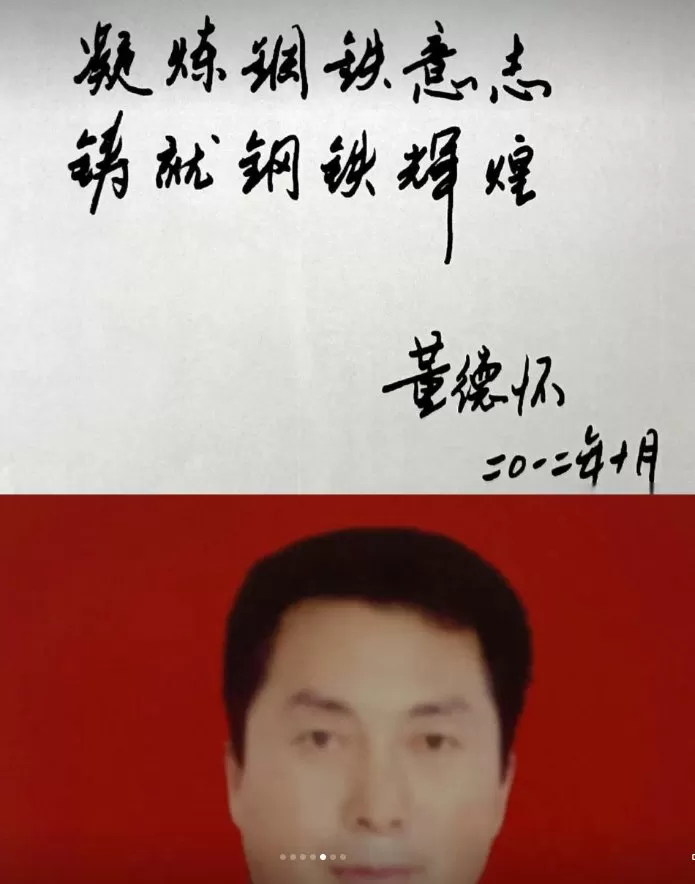 凝炼钢铁意志
铸就钢铁辉煌
董德怀
二〇一二年十月